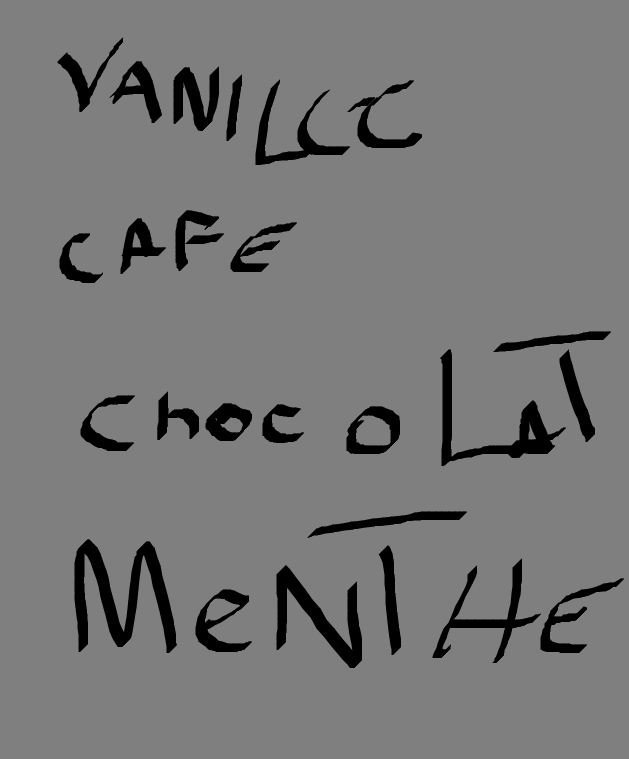 VANILCC
CAFE
chocoLAT
MeNTHE